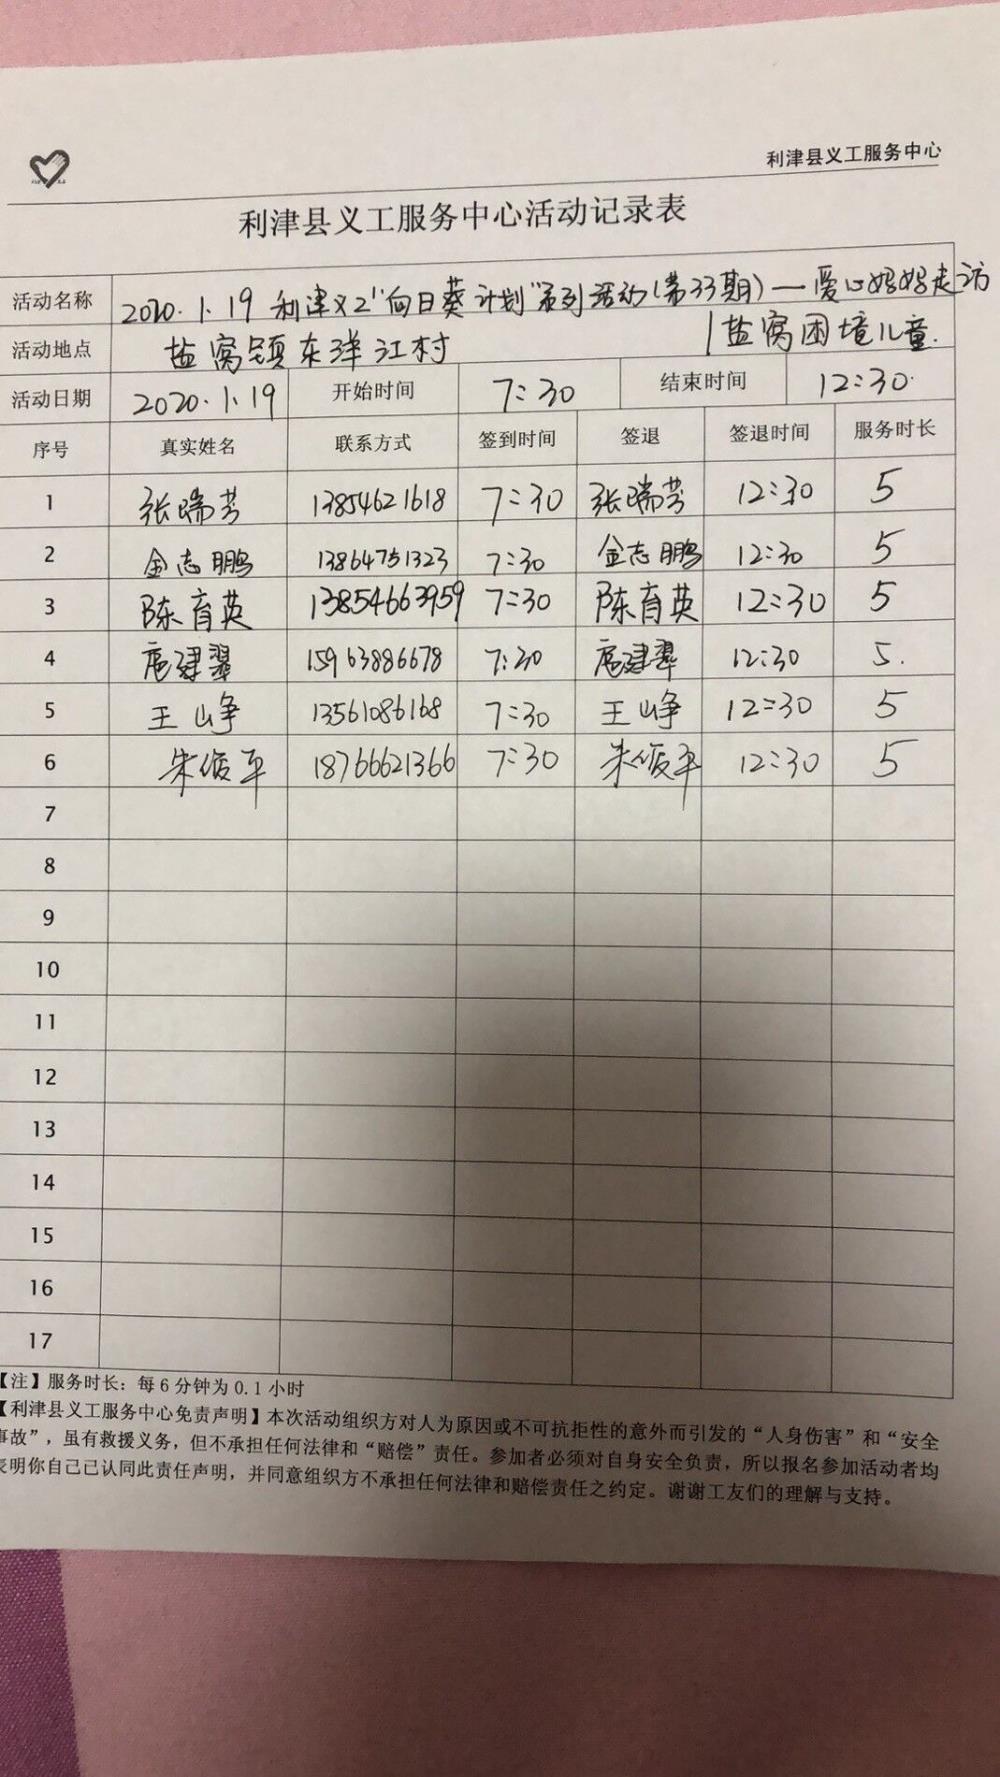 利津县义工服务中心
利津县义工服务中心活动记录表
活动名称 2020.1.19 利津义工"向日葵计划"系列活动(第33期)—爱心妈妈走访
盐窝困境儿童.
活动地点 盐窝镇东洋江村
活动日期 2020.1.19 开始时间 7:30 结束时间 12:30
序号 真实姓名 联系方式 签到时间 签退 签退时间 服务时长
1 张瑞芳 13854621618 7:30 张瑞芳 12:30 5
2 金志鹏 13864751323 7:30 金志鹏 12:30 5
3 陈育英 13854663959 7:30 陈育英 12:30 5
4 扈建翠 15963886678 7:30 扈建翠 12:30 5.
5 王峥 13561086168 7:30 王峥 12:30 5
6 朱俊平 18766621366 7:30 朱俊平 12:30 5
7
8
9
10
11
12
13
14
15
16
17
【注】服务时长：每6分钟为0.1小时
【利津县义工服务中心免责声明】本次活动组织方对人为原因或不可抗拒性的意外而引发的“人身伤害”和“安全
事故”，虽有救援义务，但不承担任何法律和“赔偿”责任。参加者必须对自身安全负责，所以报名参加活动者均
表明你自己己认同此责任声明，并同意组织方不承担任何法律和赔偿责任之约定。谢谢工友们的理解与支持。